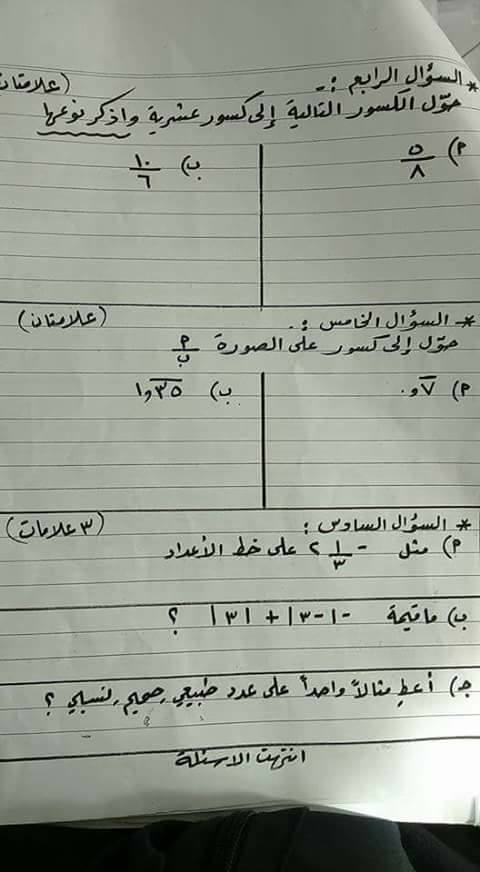 * السؤال الرابع :- (علامتان
حوّل الكسور التالية إلى كسور عشرية واذكر نوعها
أ) ٥/٨ ب) ١٠/٦
* السؤال الخامس :. (علامتان)
حوّل إلى كسور على الصورة أ/ب
أ) ٠و٧̅ ب) ١و٣̅٥̅
* السؤال السادس : (٣ علامات)
أ) مثل - ٢ ١/٣ على خط الأعداد
ب) ما قيمة -|-٣| + |٣| ؟
جـ) أعطِ مثالاً واحداً على عدد طبيعي, صحيح, نسبي ؟
انتهت الاسئلة